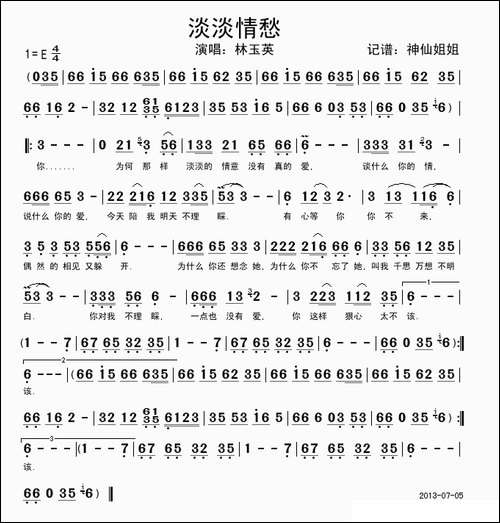 淡淡情愁
演唱：林玉英 记谱：神仙姐姐
1=E 4/4
(035|66 i5 66 635|66 i5 62 35|66 i5 66 635|66 i5 62 35|
66 16 2 -|32 12 6135 6123|35 53 i6 5|66 6 03 53|66 0 35 6)
‖: 3 - - -|0 21 3 56|133 21 65 66|6 - - -|333 31 3 - -|
你....... 为何 那 样 淡淡的 情意 没有 真的 爱, 谈什么 你的 情,
666 65 3 -|22 216 12 335|53 3 - -|6 12 3 2·|3 13 116 6|
说什么 你的 爱, 今天 陪 我 明天 不理 睬. 有 心等 你 你 不 来,
3 5 3 53 556|6 - - -|666 65 33 3|222 216 66 6|33 35 53 35|
偶 然 的 相见 又躲 开. 为什么 你还 想念 她, 为什么 你不 忘了 她, 叫我 千思 万想 不明
53 3 - -|333 56 6 -|666 13 2 -|3 223 112 35|6 - - -|
白. 你对我 不理 睬, 一点也 没有 爱, 你 这样 狠心 太不 该.
(1 - - 7|67 65 32 35|1 - - 7|67 65 32 35|6 - - -|66 0 35 6):‖
6 - - -|(66 i5 66 635|66 i5 62 35|66 i5 66 635|66 i5 62 35|
该.
66 16 2 -|32 12 6135 6123|35 53 i6 5|66 6 03 53|66 0 35 6):‖
6 - - -|(1 - - 7|67 65 32 35|1 - - 7|67 65 32 35|6 - - -|
该.
66 0 35 6)‖
2013-07-05